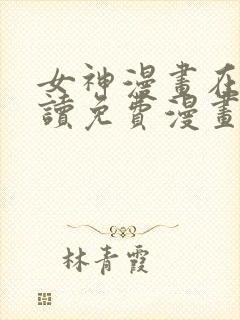 女神漫畫在
讀免費漫畫
林青霞